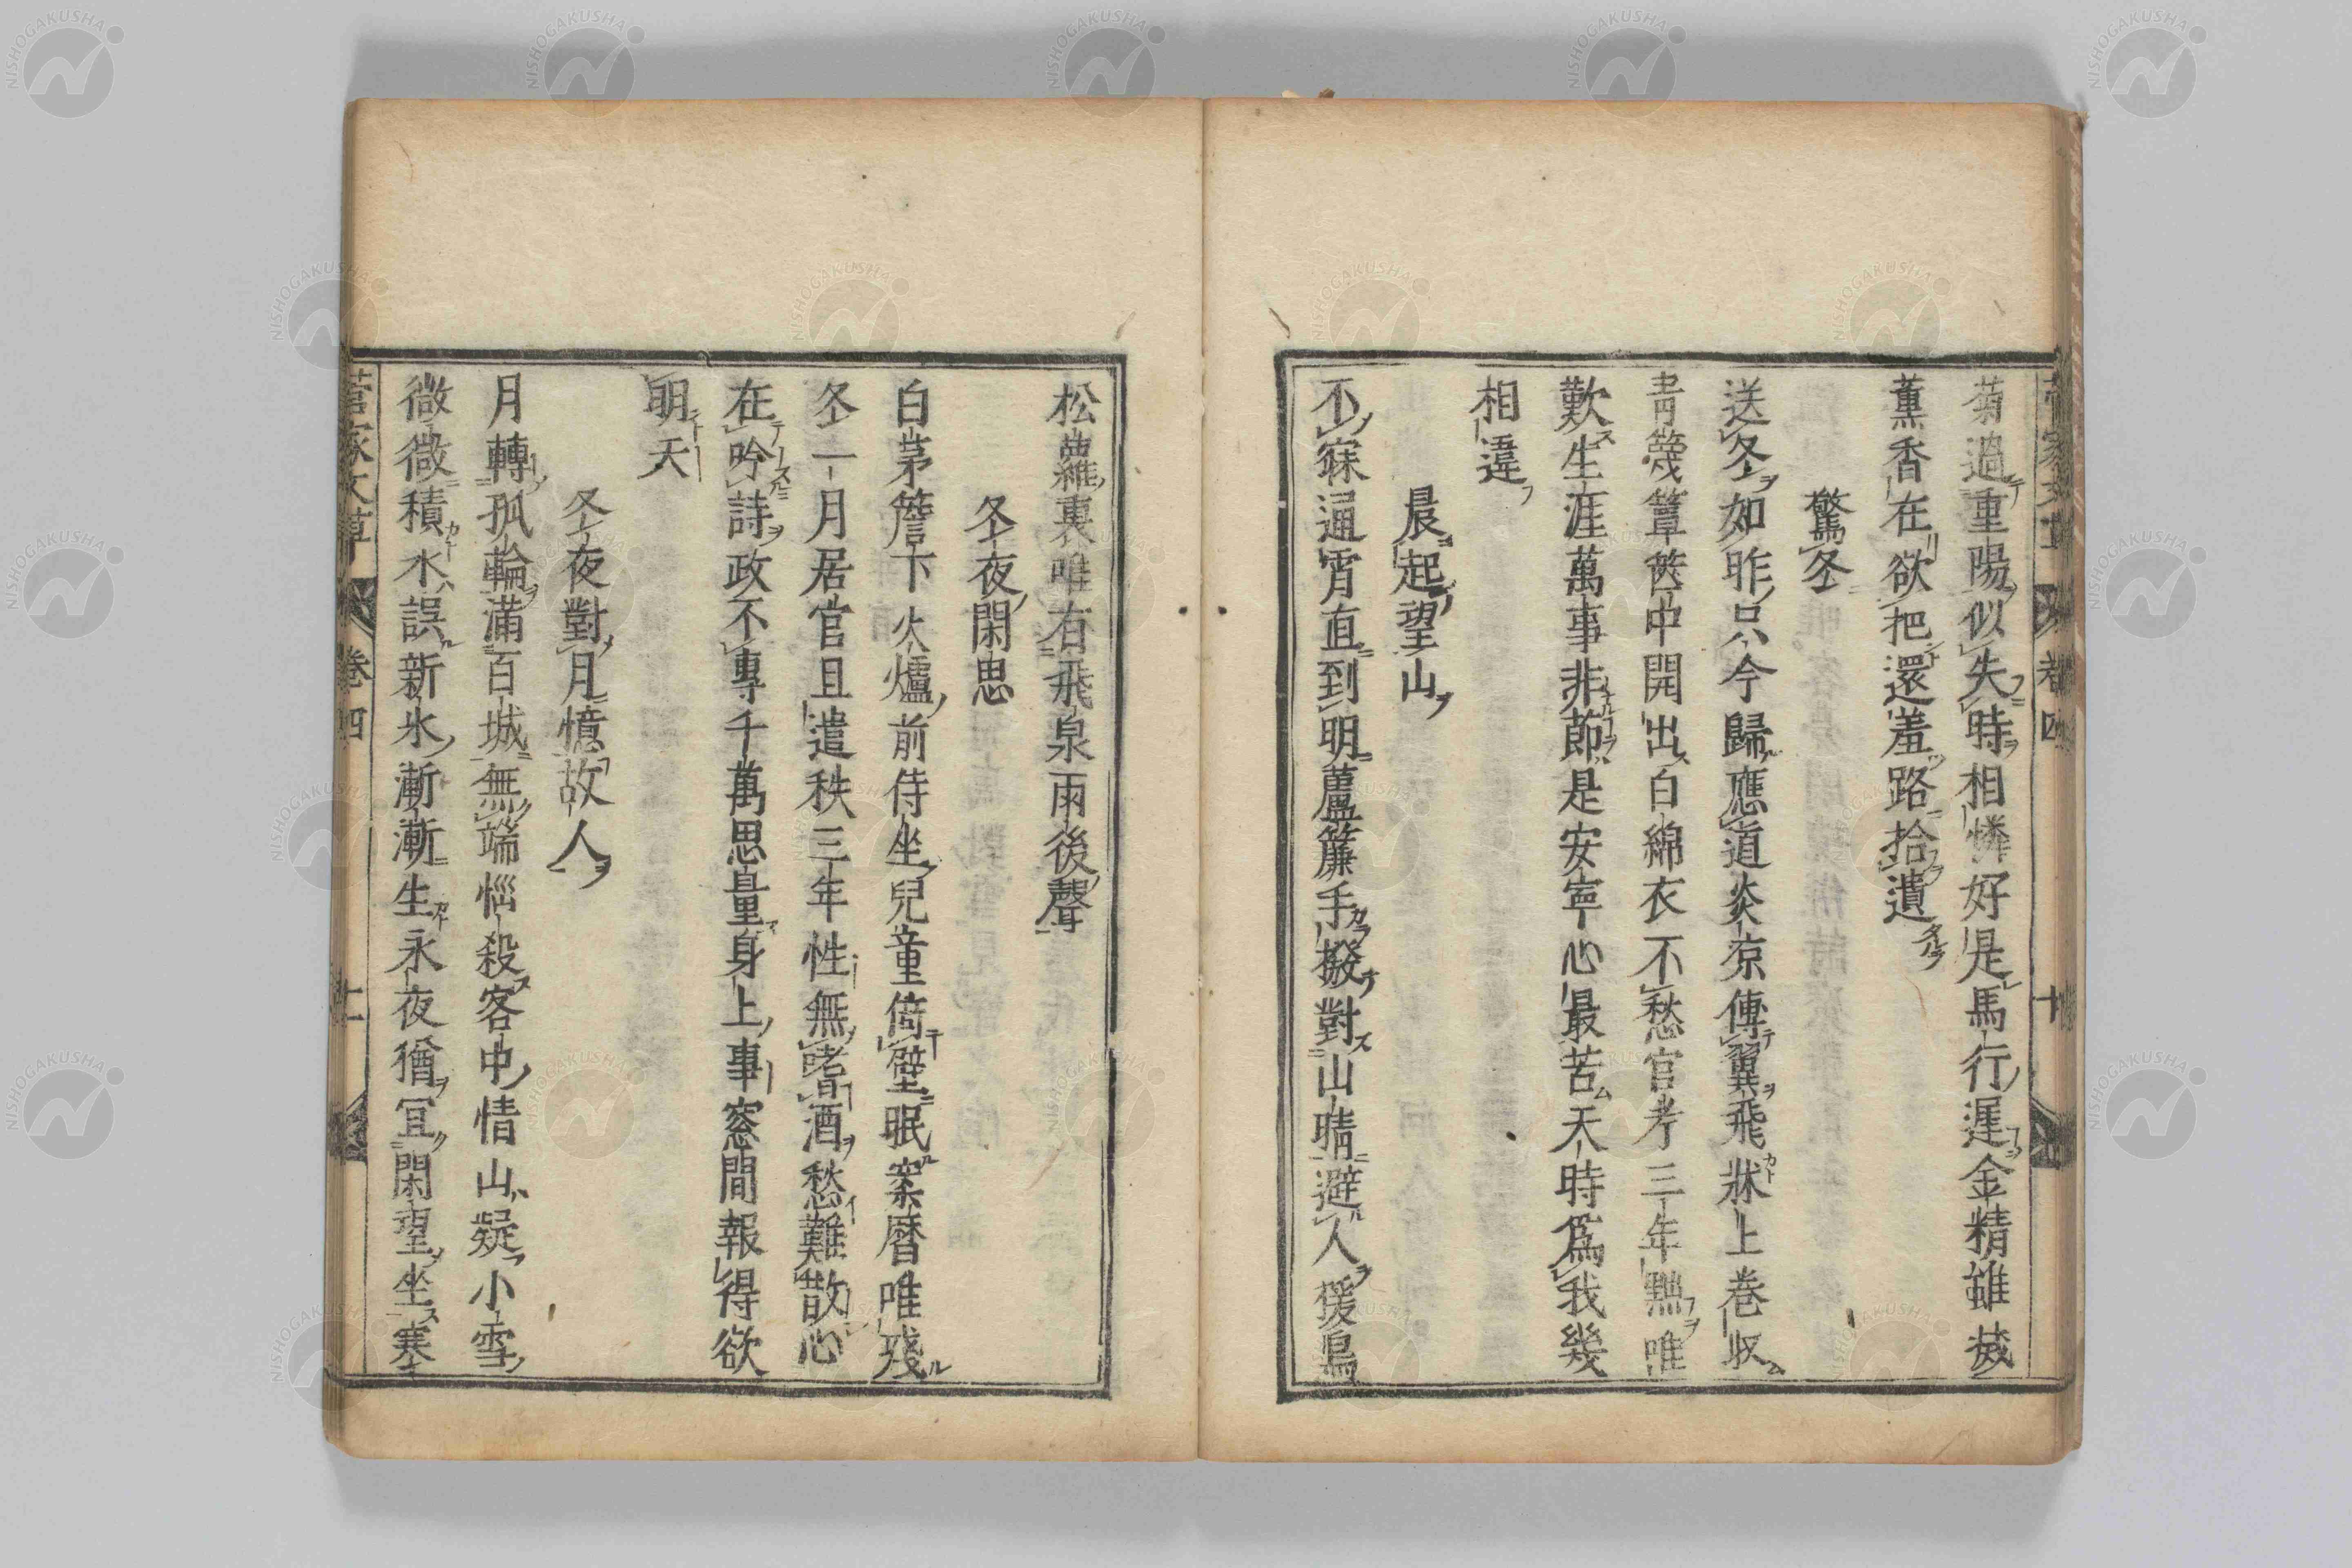 菊過重陽似失時相憐好是馬行遲金精雖
薫香在欲把還羞路拾遺
驚冬
送冬如昨只今歸應道炎凉傳翼飛牀上卷収
青篾簟篋中開出白綿衣不愁官考三年黜唯
歎生涯萬事非節是安寧心最苦天時爲我幾
相違
晨起望山
不寐通宵直到明蘆簾手撥對山晴避人猨鳥
松蘿裏唯有飛泉雨後聲
冬夜閑思
白茅簷下火爐前侍坐兒童倚壁眠案曆唯殘
冬一月居官且遣秩三年性無嗜酒愁難散心
在吟詩政不專千萬思量身上事窓間報得欲
明天
冬夜對月憶故人
月轉孤輪滿百城無端惱殺客中情山疑小雪
微微積水誤新氷漸漸生永夜猶宜閑望坐寒
菅家文草 卷四
NISHOGAKUSHA